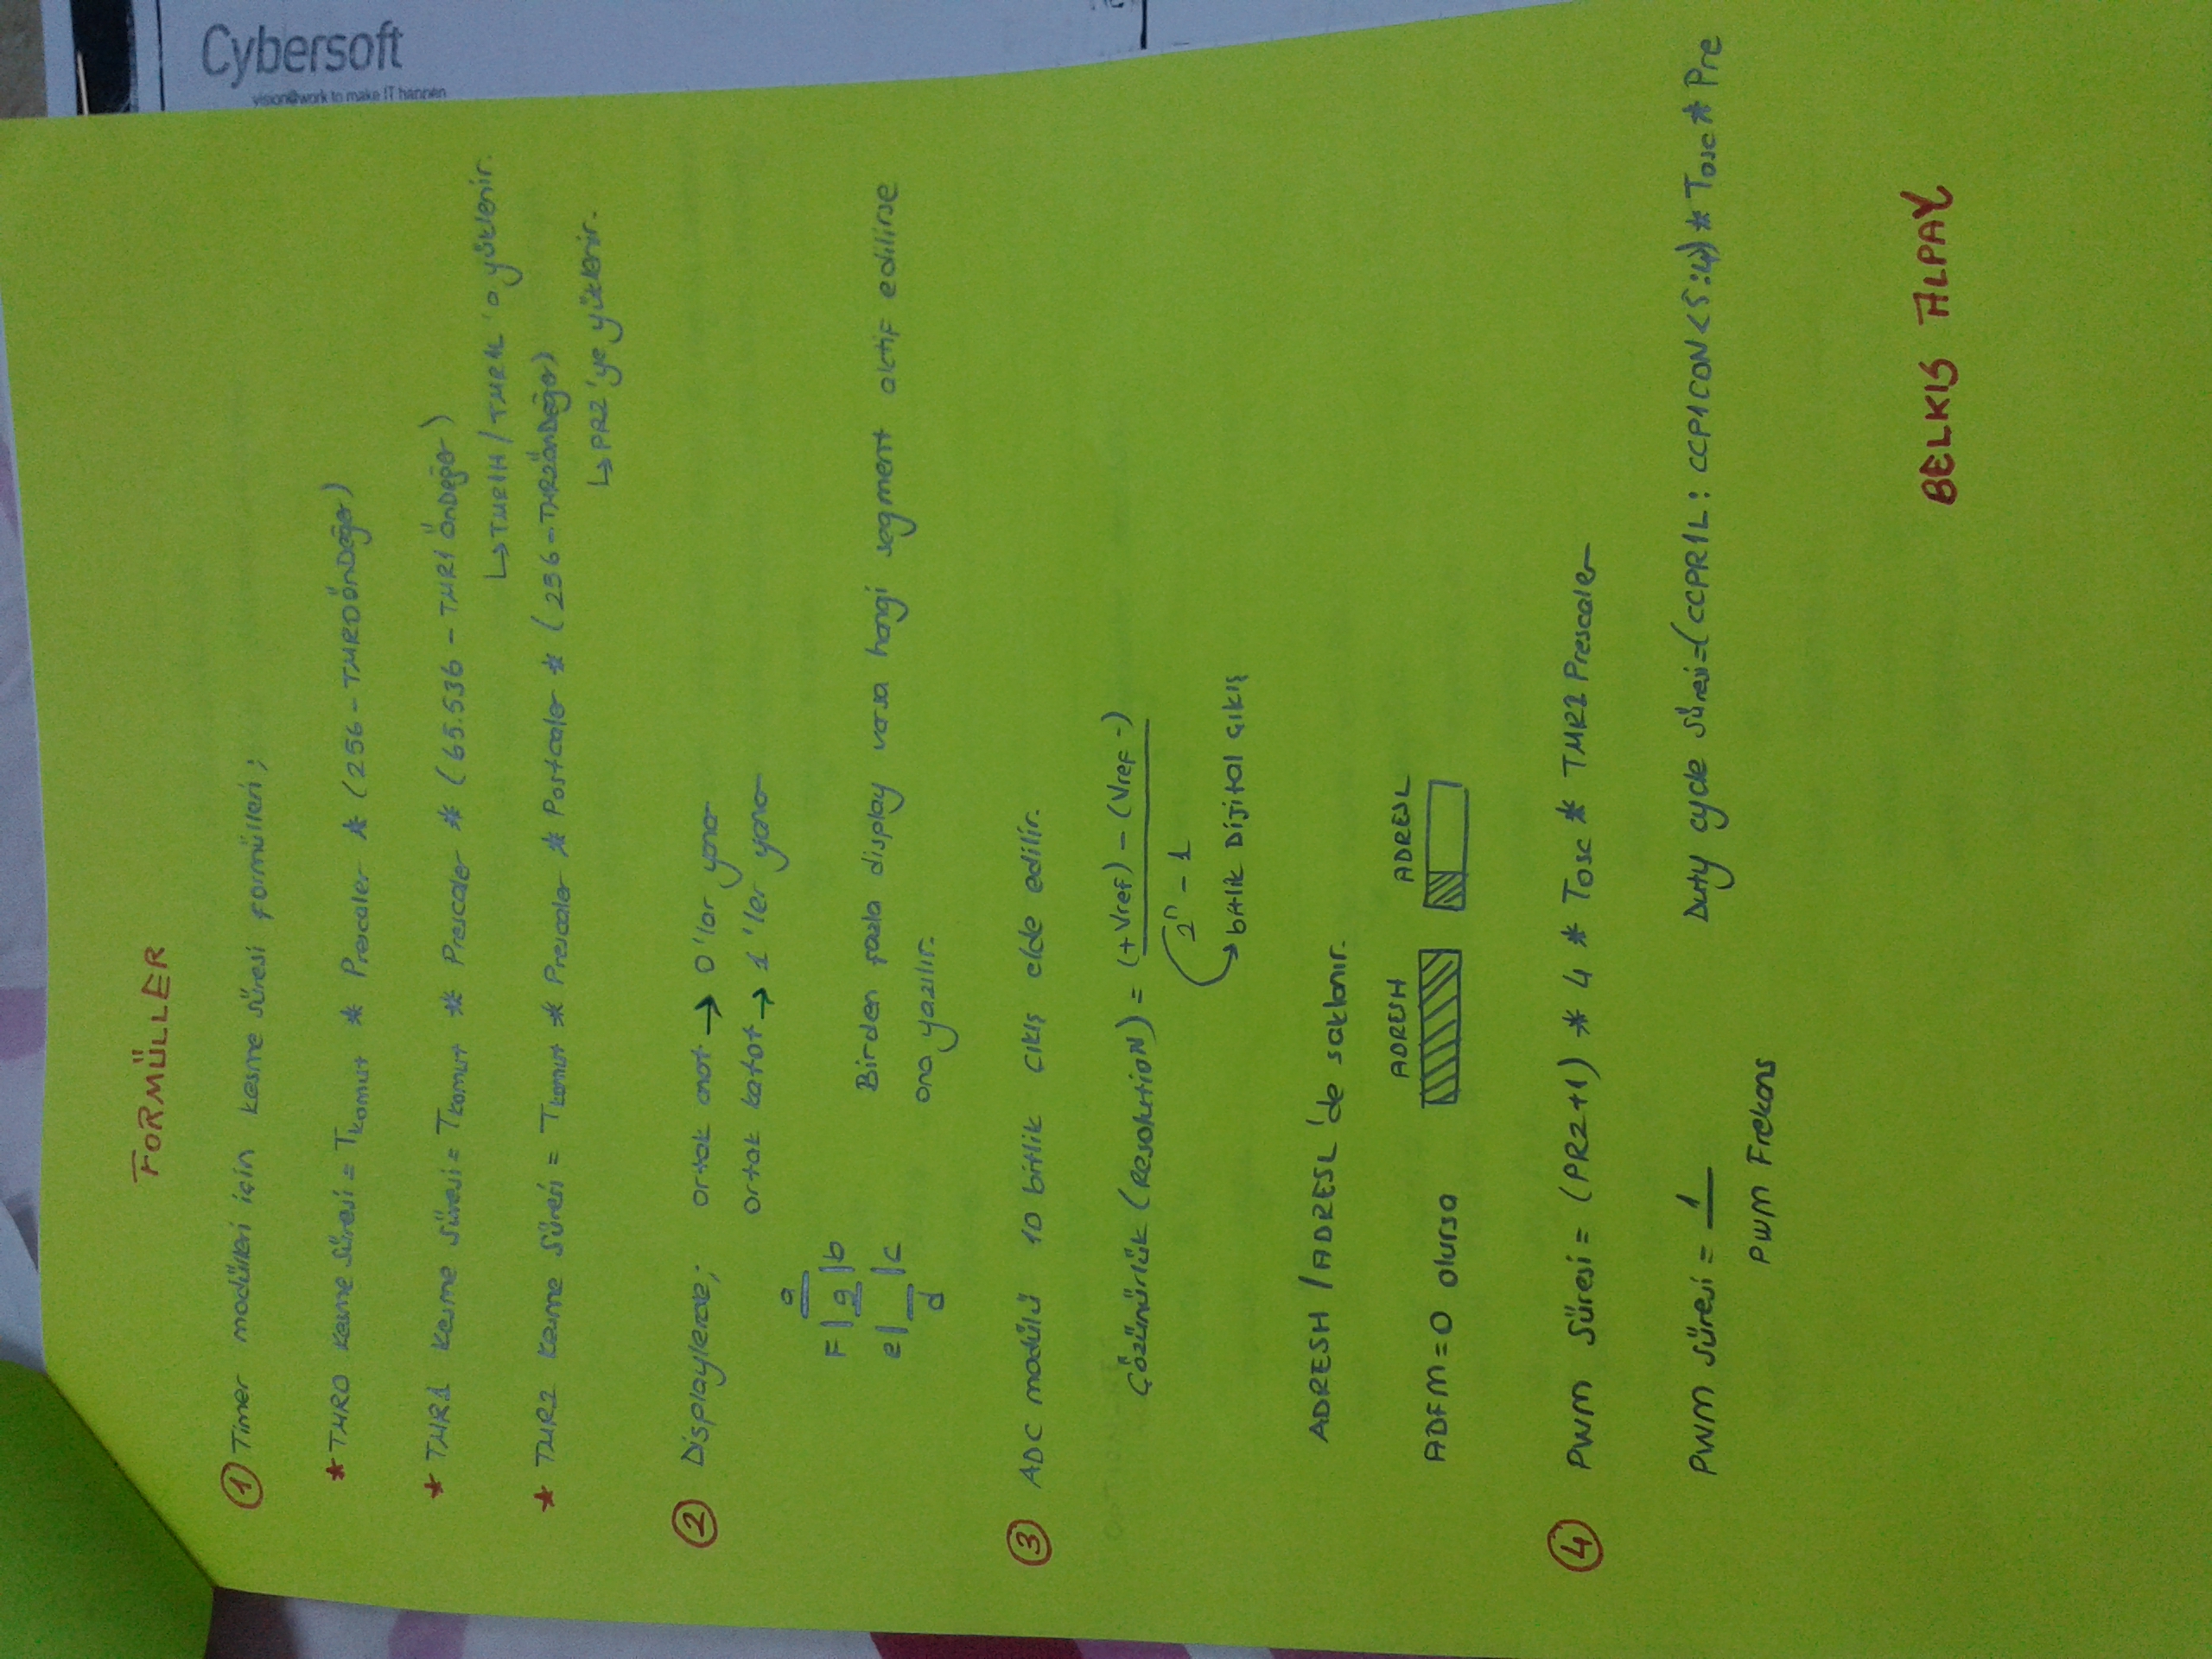 FORMÜLLER
① Timer modülleri için kesme süresi formülleri;
* TMR0 Kesme Süresi = Tkomut * Prescaler * (256 - TMR0ÖnDeğer)
* TMR1 Kesme Süresi = Tkomut * Prescaler * (65.536 - TMR1 ÖnDeğer)
↳ TMR1H / TMR1L 'a yüklenir.
* TMR2 Kesme Süresi = Tkomut * Prescaler * Postcaler * (256 - TMR2ÖnDeğer)
↳ PR2 'ye yüklenir.
② Displaylerde; ortak anot → 0'lar yanar
ortak katot → 1'ler yanar
a
F g b
e c
d
Birden fazla display varsa hangi segment aktif edilirse
ona yazılır.
③ ADC modülü 10 bitlik çıkış elde edilir.
Çözünürlük (Resolution) = (+Vref) - (Vref -)
2ⁿ - 1
bitlik Dijital Çıkış
ADRESH / ADRESL 'de saklanır.
ADRESH ADRESL
ADFM = 0 olursa
④ PWM Süresi = (PR2+1) * 4 * Tosc * TMR2 Prescaler
PWM Süresi = 1
PWM Frekans
Duty cycle Süresi = (CCPR1L : CCP1CON <5:4) * Tosc * Pre
BELKIS ALPAY
Cybersoft
vision@work to make IT happen